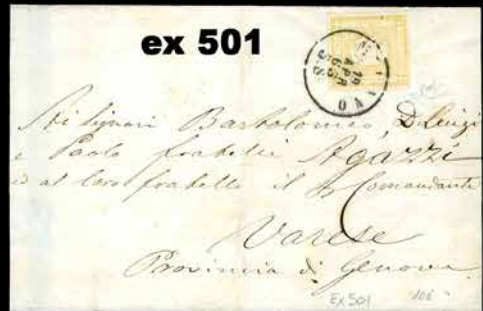 ex 501
MILANO
19
APR
63
Ai Signori Bartolomeo, D. Luigi
e Paolo fratelli Agazzi
ed al loro fratello il Comandante
Varese
Provincia di Genova
Ex 501